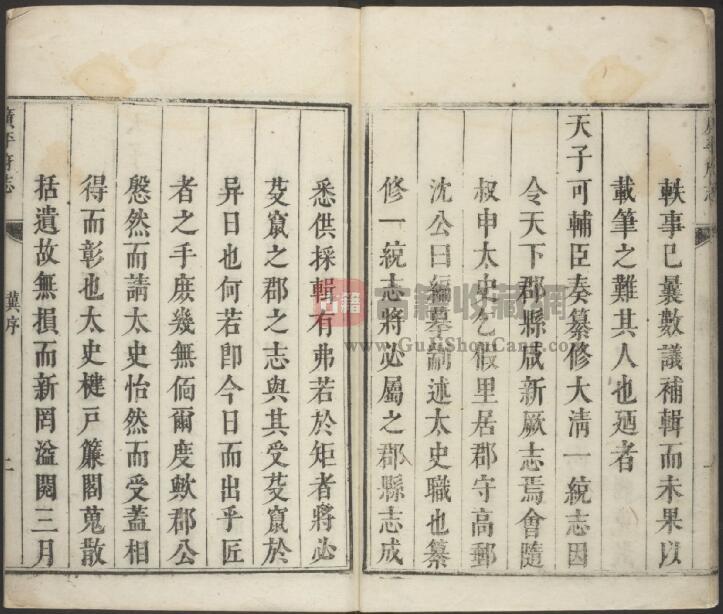 軼事已曩數議補輯而未果以
載筆之難其人也廼者
天子可輔臣奏纂修大清一統志因
令天下郡縣咸新厥志焉會隨
叔申太史乞假里居郡守高郵
沈公曰編摹論述太史職也纂
修一統志將必屬之郡縣志成
悉供採輯有弗若於矩者將必
芟竄之郡之志與其受芟竄於
异日也何若卽今日而出乎匠
者之手庶幾無偭爾度歟郡公
慇然而請太史怡然而受蓋相
得而彰也太史楗戸簾閣蒐散
括遺故無損而新罔溢閱三月
廣平府志
冀序
二
古籍收藏網
www.GuJiShouCang.com